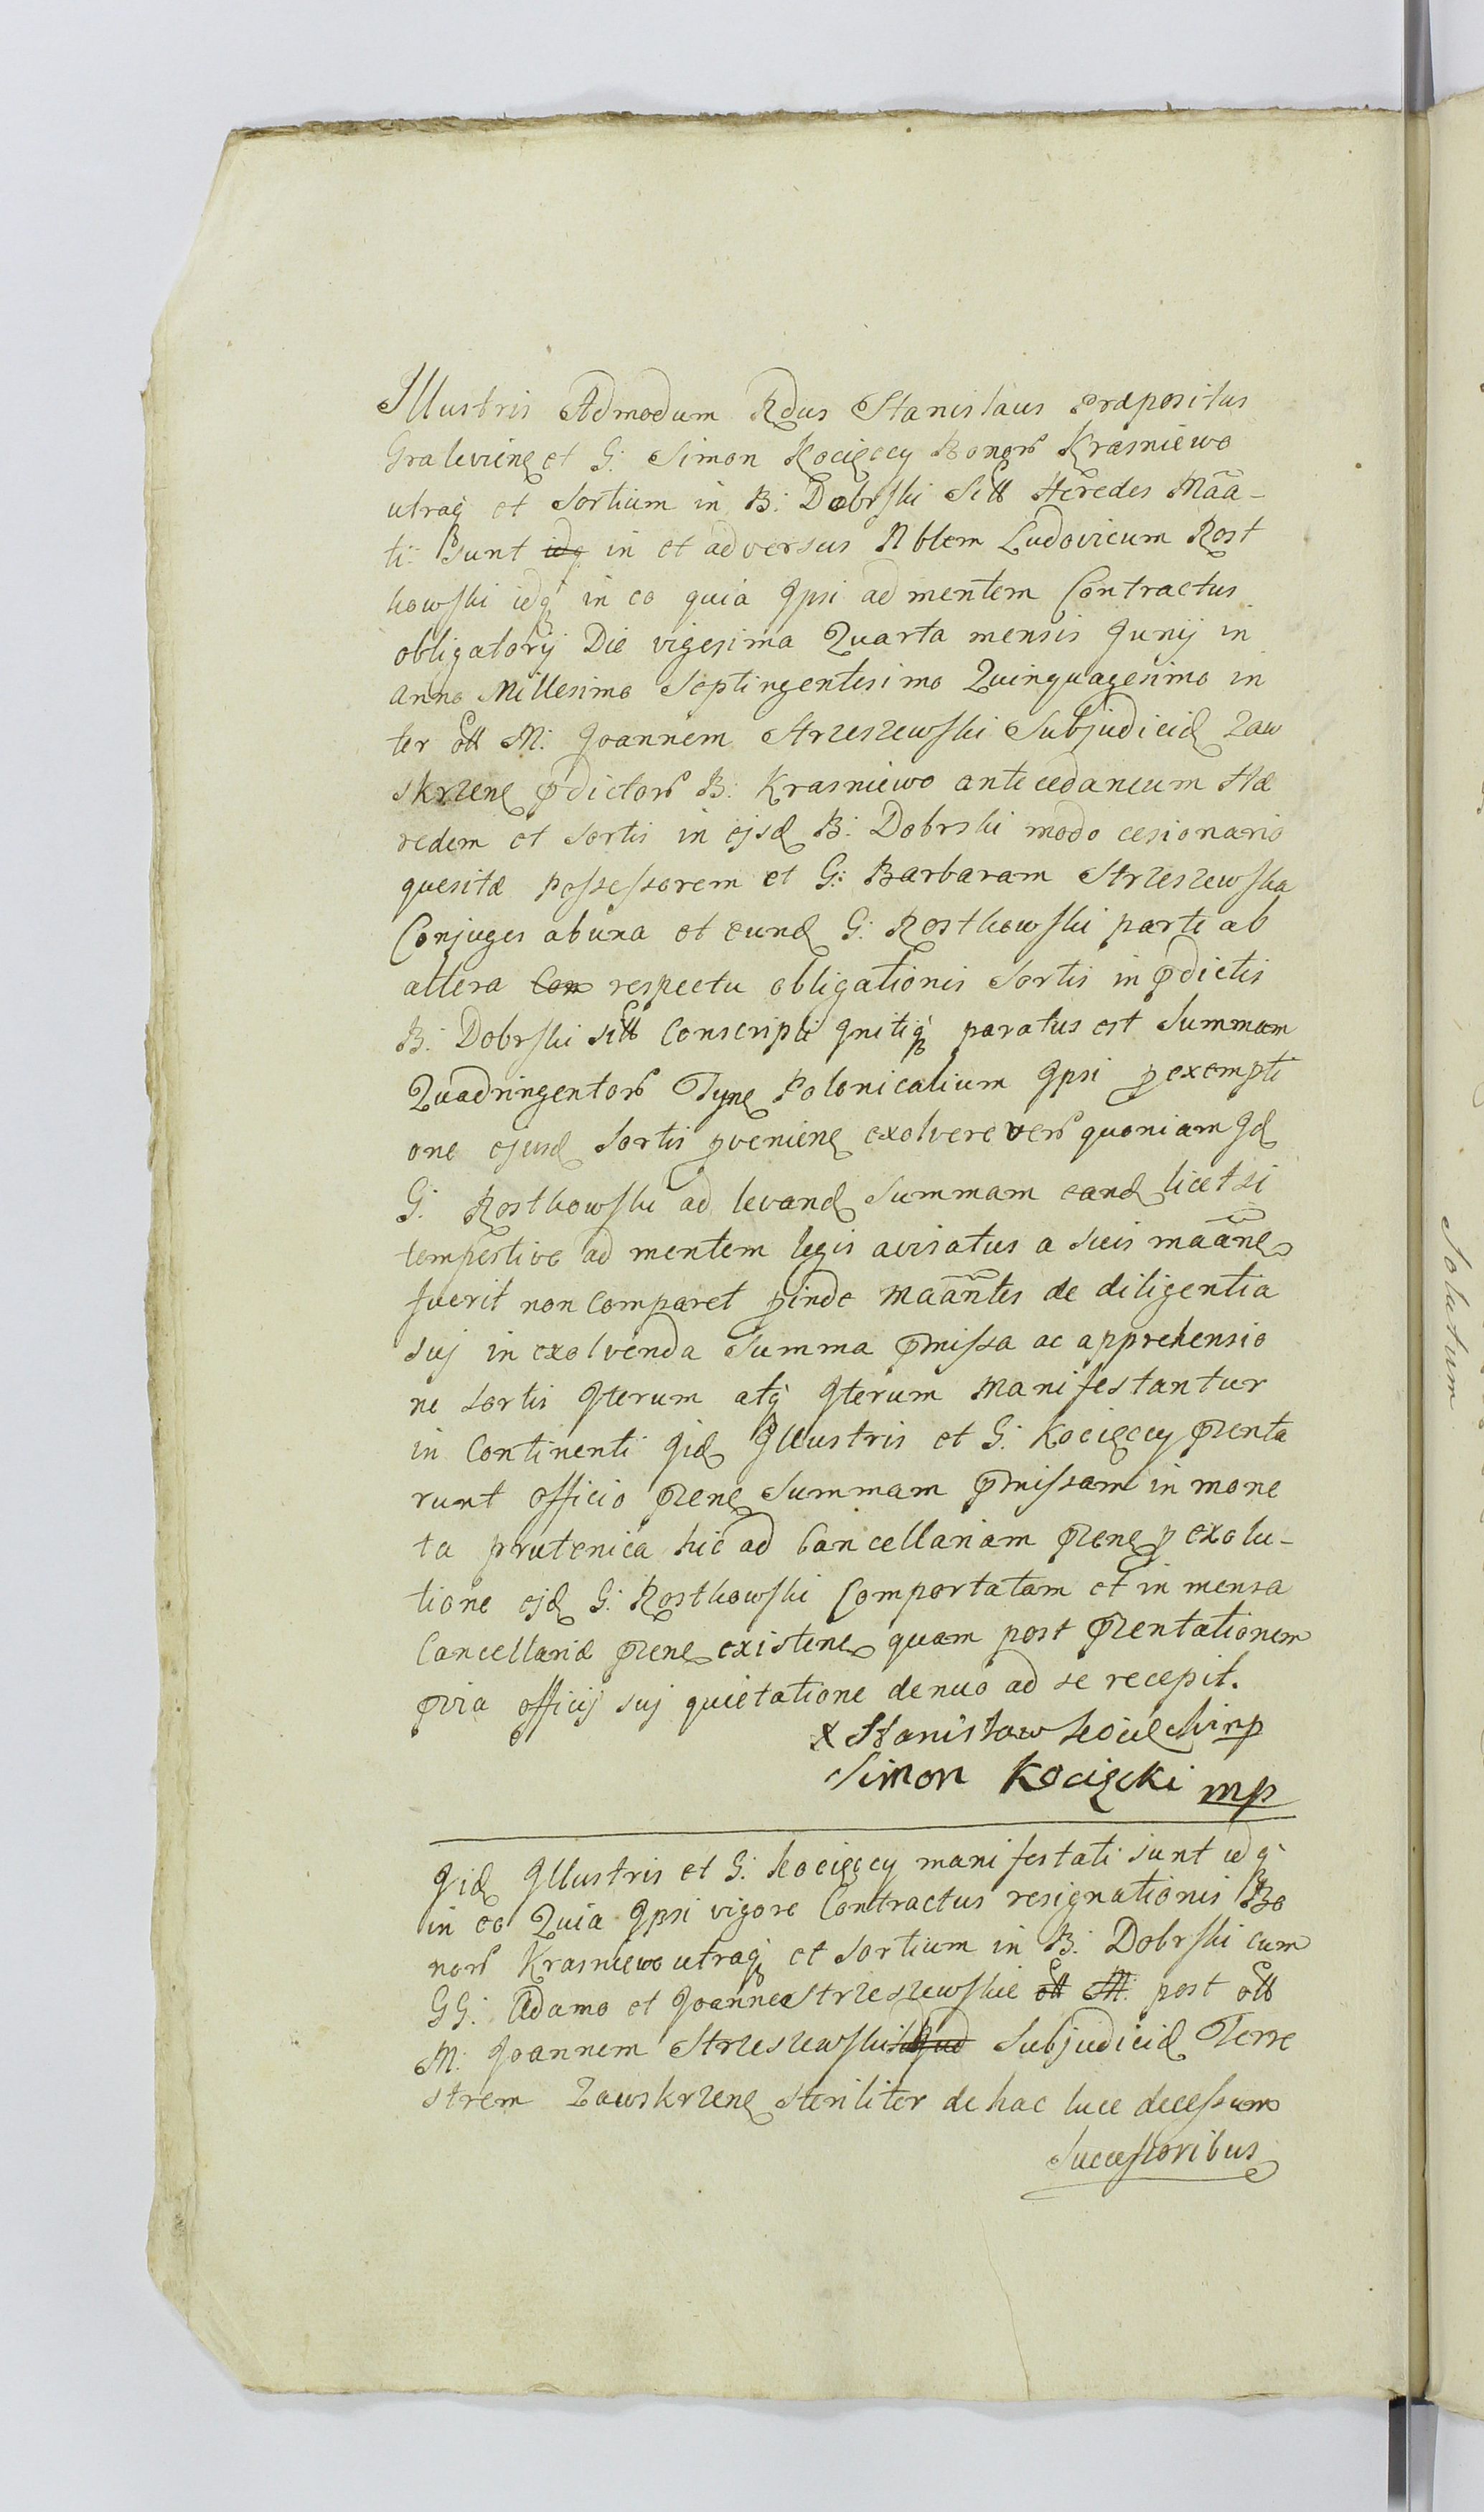 Illustris Admodum Rdus Stanislaus Præpositus
Graleviens et G: Simon Kocięccy Bonorũ Krasniewo
utrãq et Sortium in B: Dobrski Sitt Heredes Mãã-
ti: sunt idq in et adversus Nblem Ludovicum Rost
kowski idq in eo quia Ipsi ad mentem Contractus
obligatorij Die vigesima Quarta mensis Junij in
anno Millesimo Septingentesimo Quinquagesimo in
ter ott M: Joannem Strzeszewski Subjudicẽ Zaw
skrzens pdictorũ B: Krasniewo antecedaneum Hæ
redem et Sortis in ejsd B: Dobrski modo cesionario
quesitæ possessorem et G: Barbaram Strzeszewska
Conjuges ab una et eund G: Rostkowski parte ab
altera Con respectu obligationis Sortis in pdictis
B: Dobrski sitt Conscripti Initiq paratus est Summam
Quadringentorũ Tyne Polonicalium Ipsi p exempti
one ejusd Sortis pveniene exolvere verũ quoniam Id
G: Rostkowski ad levand Summam eand licet si
tempestive ad mentem legis avisatus a suis maãne
fuerit non Comparet pinde Maãntes de diligentia
suj in exolvenda Summa pmissa ac apprehensio
ne Sortis Iterum atq Iterum Manifestantur
in Continenti Iid Illustris et G: Kocięccy pzenta
runt officio pzene Summam pmissam in mone
ta prutenica hic ad Cancellariam pzene p exolu-
tione ejd G: Rostkowski Comportatam et in mensa
Cancellariæ pzene existene quam post pzentationem
pvia officij suj quietatione denuo ad se recepit.
X Stanisław Kocięcki mp
Simon Kocięcki mp
Iid Illustris et G: Kocięccy manifestati sunt idq
in eo Quia Ipsi vigore Contractus resignationis Bo
norũ Krasniewo utraq et Sortium in B: Dobrski cum
GG: Adamo et Joanne Strzeszewskie ott M: post ott
M: Joannem Strzeszewski Subjud Subjudicẽ Terre
strem Zawskrzene steriliter de hac luce decessum
Successoribus
Solutum